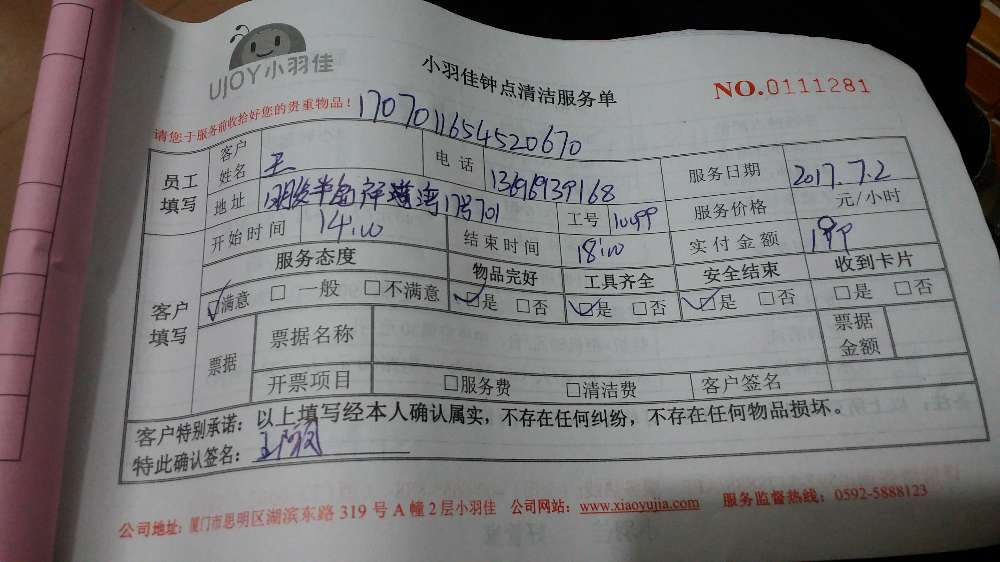 UJOY小羽佳
小羽佳钟点清洁服务单
NO.0111281
请您于服务前收拾好您的贵重物品!
1707011654520670
员工填写 客户姓名 王 电话 13696939168 服务日期 2017.7.2
地址 半岛 17号701 工号 服务价格 元/小时
客户填写 开始时间 14:00 结束时间 18:00 实付金额
服务态度 物品完好 工具齐全 安全结束 收到卡片
☑满意 □一般 □不满意 ☑是 □否 ☑是 □否 ☑是 □否 □是 □否
票据 票据名称 票据金额
开票项目 □服务费 □清洁费 客户签名
客户特别承诺:以上填写经本人确认属实,不存在任何纠纷,不存在任何物品损坏。
特此确认签名:
公司地址:厦门市思明区湖滨东路 319 号 A 幢 2 层小羽佳 公司网站:www.xiaoyujia.com 服务监督热线:0592-5888123